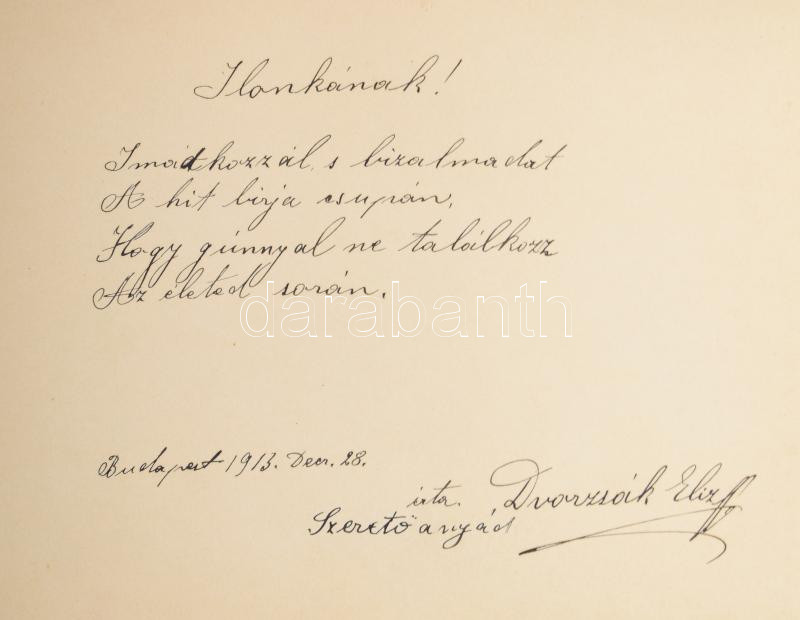 Ilonkának!
Imádkozzál, s bizalmadat
A hit birja csupán,
Hogy gúnnyal ne találkozz
Az életed során.
darabanth
Budapest 1913. Decr. 28.
irta. Dvorzsák Eliz
Szerető anyád